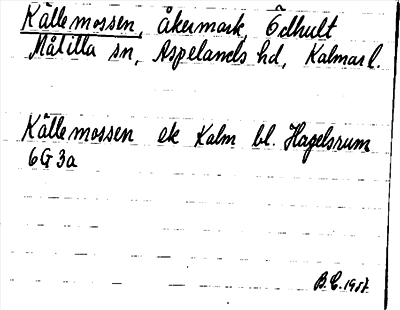 Källemossen, åkermark, Ödhult
Målilla sn, Aspelands hd, Kalmar l.
Källemossen ek Kalm bl. Hagelsrum
6G 3a
B.E. 1957